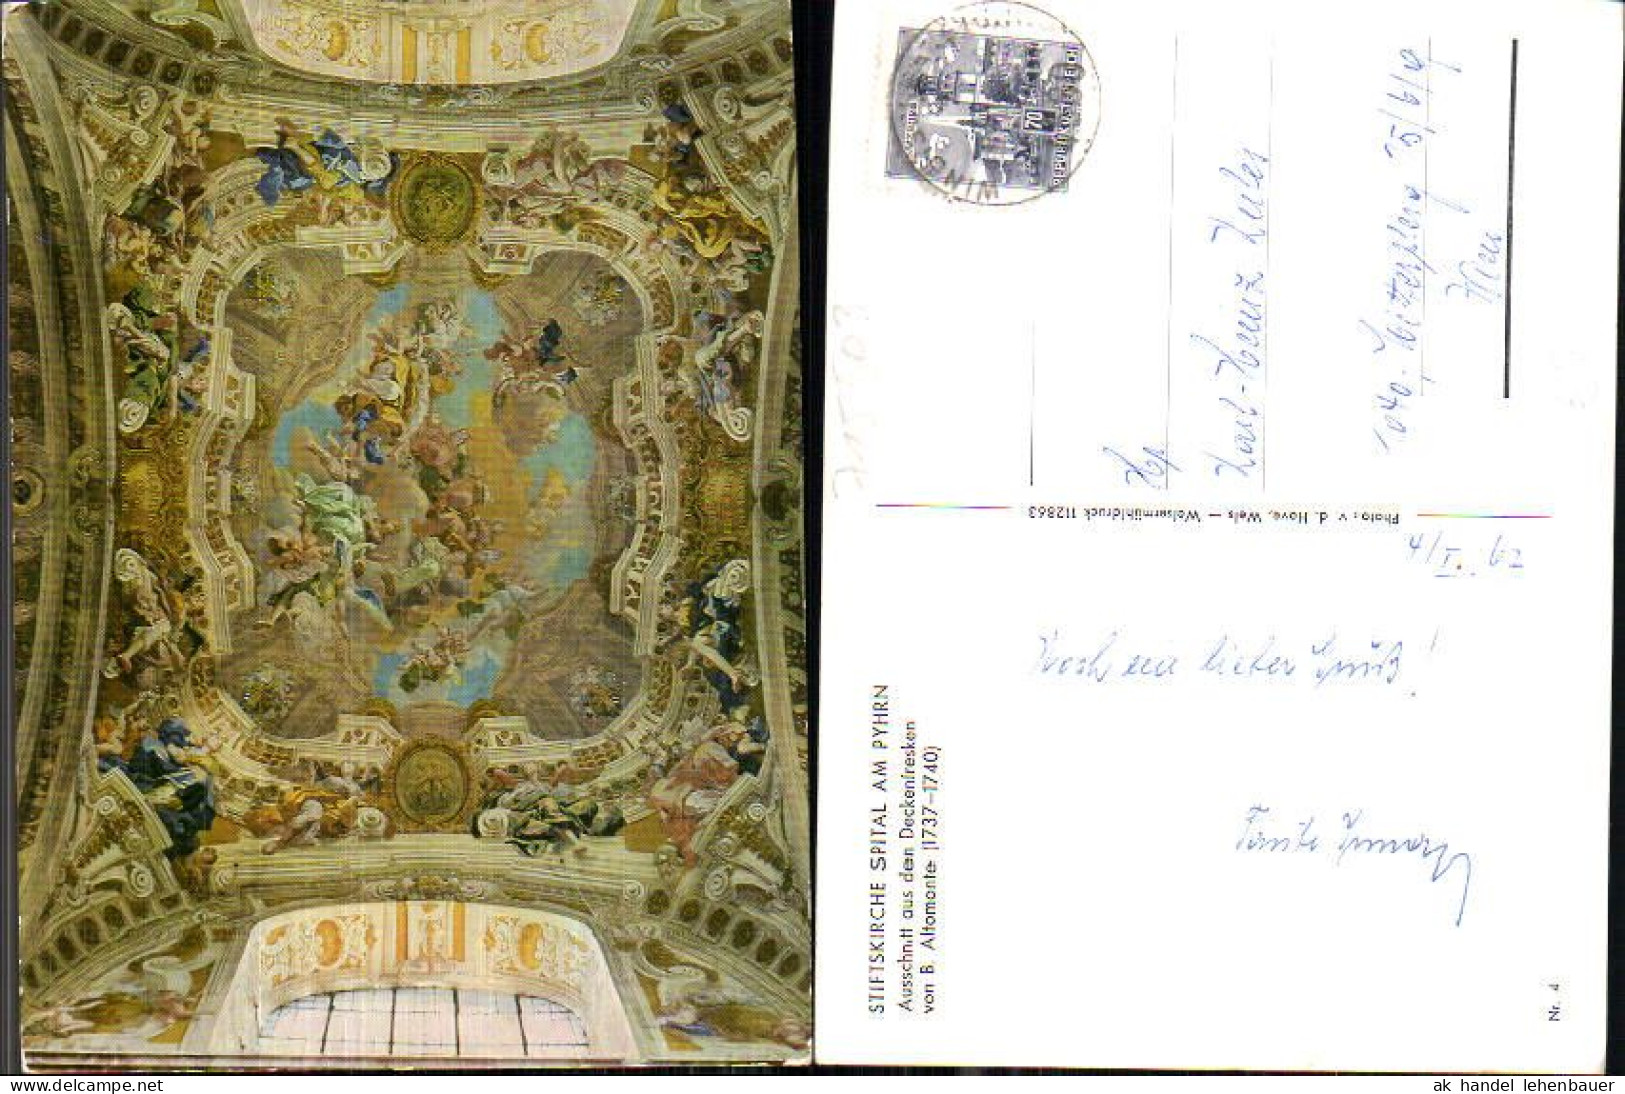 STIFTSKIRCHE SPITAL AM PYHRN
Ausschnitt aus den Deckenfresken
von B. Altomonte (1737–1740)
4/I. 62
Noch ein lieber Gruß!
Tante
Photo: v. d. Hove, Wels — Welsermühldruck 112863
REPUBLIK ÖSTERREICH
70
Karl-Heinz
1040-
Wien
Nr. 4
71503
ak handel lehenbauer
www.delcampe.net/de